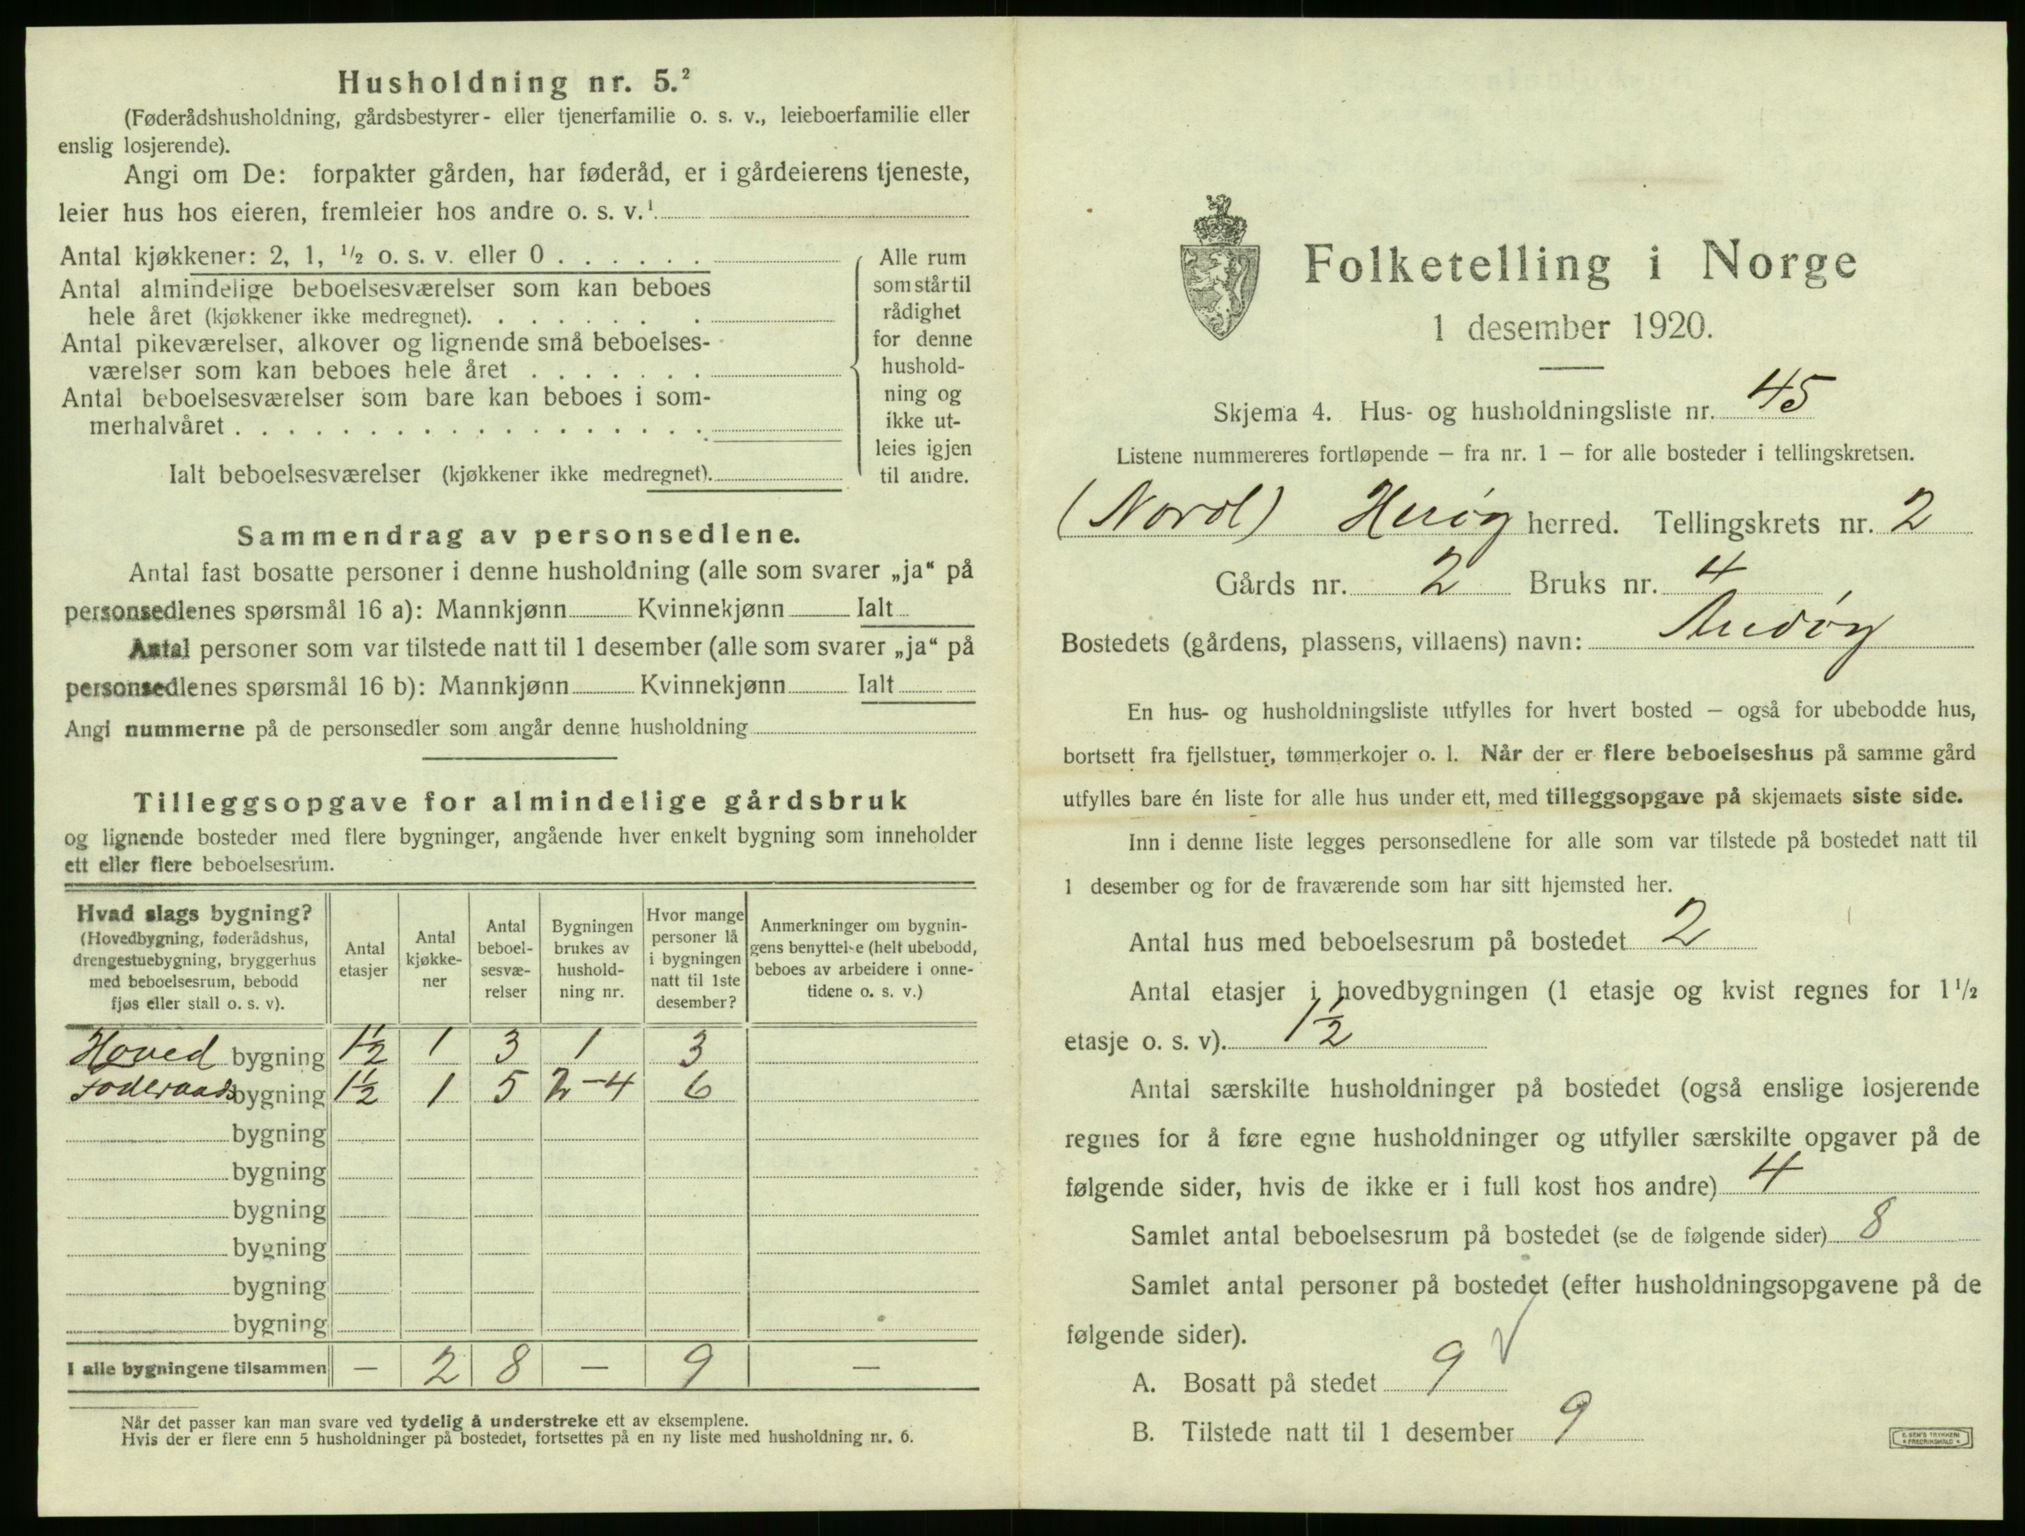 Husholdning nr. 5.²
(Føderådshusholdning, gårdsbestyrer- eller tjenerfamilie o. s. v., leieboerfamilie eller
enslig losjerende).
Angi om De: forpakter gården, har føderåd, er i gårdeierens tjeneste,
leier hus hos eieren, fremleier hos andre o. s. v.¹
Antal kjøkkener: 2, 1, ½ o. s. v. eller 0
Antal almindelige beboelsesværelser som kan beboes
hele året (kjøkkener ikke medregnet).
Antal pikeværelser, alkover og lignende små beboelses-
værelser som kan beboes hele året
Antal beboelsesværelser som bare kan beboes i som-
merhalvåret
Ialt beboelsesværelser (kjøkkener ikke medregnet).
Alle rum
som står til
rådighet
for denne
hushold-
ning og
ikke ut-
leies igjen
til andre.
Sammendrag av personsedlene.
Antal fast bosatte personer i denne husholdning (alle som svarer „ja“ på
personsedlenes spørsmål 16 a): Mannkjønn Kvinnekjønn Ialt
Antal personer som var tilstede natt til 1 desember (alle som svarer „ja“ på
personsedlenes spørsmål 16 b): Mannkjønn Kvinnekjønn Ialt
Angi nummerne på de personsedler som angår denne husholdning
Tilleggsopgave for almindelige gårdsbruk
og lignende bosteder med flere bygninger, angående hver enkelt bygning som inneholder
ett eller flere beboelsesrum.
Hvad slags bygning?
(Hovedbygning, føderådshus,
drengestuebygning, bryggerhus
med beboelsesrum, bebodd
fjøs eller stall o. s. v).
Antal
etasjer
Antal
kjøkke-
ner
Antal
beboel-
sesvæ-
relser
Bygningen
brukes av
hushold-
ning nr.
Hvor mange
personer lå
i bygningen
natt til 1ste
desember?
Anmerkninger om bygnin-
gens benyttelse (helt ubebodd,
beboes av arbeidere i onne-
tidene o. s. v.)
Hoved bygning 1½ 1 3 1 3
Foderaads bygning 1½ 1 5 2-4 6
bygning
bygning
bygning
bygning
bygning
bygning
I alle bygningene tilsammen — 2 8 — 9 —
Når det passer kan man svare ved tydelig å understreke ett av eksemplene.
Hvis der er flere enn 5 husholdninger på bostedet, fortsettes på en ny liste med husholdning nr. 6.
Folketelling i Norge
1 desember 1920.
Skjema 4. Hus- og husholdningsliste nr. 45
Listene nummereres fortløpende — fra nr. 1 — for alle bosteder i tellingskretsen.
(Nordl) Herøy herred. Tellingskrets nr. 2
Gårds nr. 2 Bruks nr. 4
Bostedets (gårdens, plassens, villaens) navn: Indøy
En hus- og husholdningsliste utfylles for hvert bosted — også for ubebodde hus,
bortsett fra fjellstuer, tømmerkojer o. l. Når der er flere beboelseshus på samme gård
utfylles bare én liste for alle hus under ett, med tilleggsopgave på skjemaets siste side.
Inn i denne liste legges personsedlene for alle som var tilstede på bostedet natt til
1 desember og for de fraværende som har sitt hjemsted her.
Antal hus med beboelsesrum på bostedet 2
Antal etasjer i hovedbygningen (1 etasje og kvist regnes for 1½
etasje o. s. v). 1½
Antal særskilte husholdninger på bostedet (også enslige losjerende
regnes for å føre egne husholdninger og utfyller særskilte opgaver på de
følgende sider, hvis de ikke er i full kost hos andre) 4
Samlet antal beboelsesrum på bostedet (se de følgende sider) 8
Samlet antal personer på bostedet (efter husholdningsopgavene på de
følgende sider).
A. Bosatt på stedet 9
B. Tilstede natt til 1 desember 9